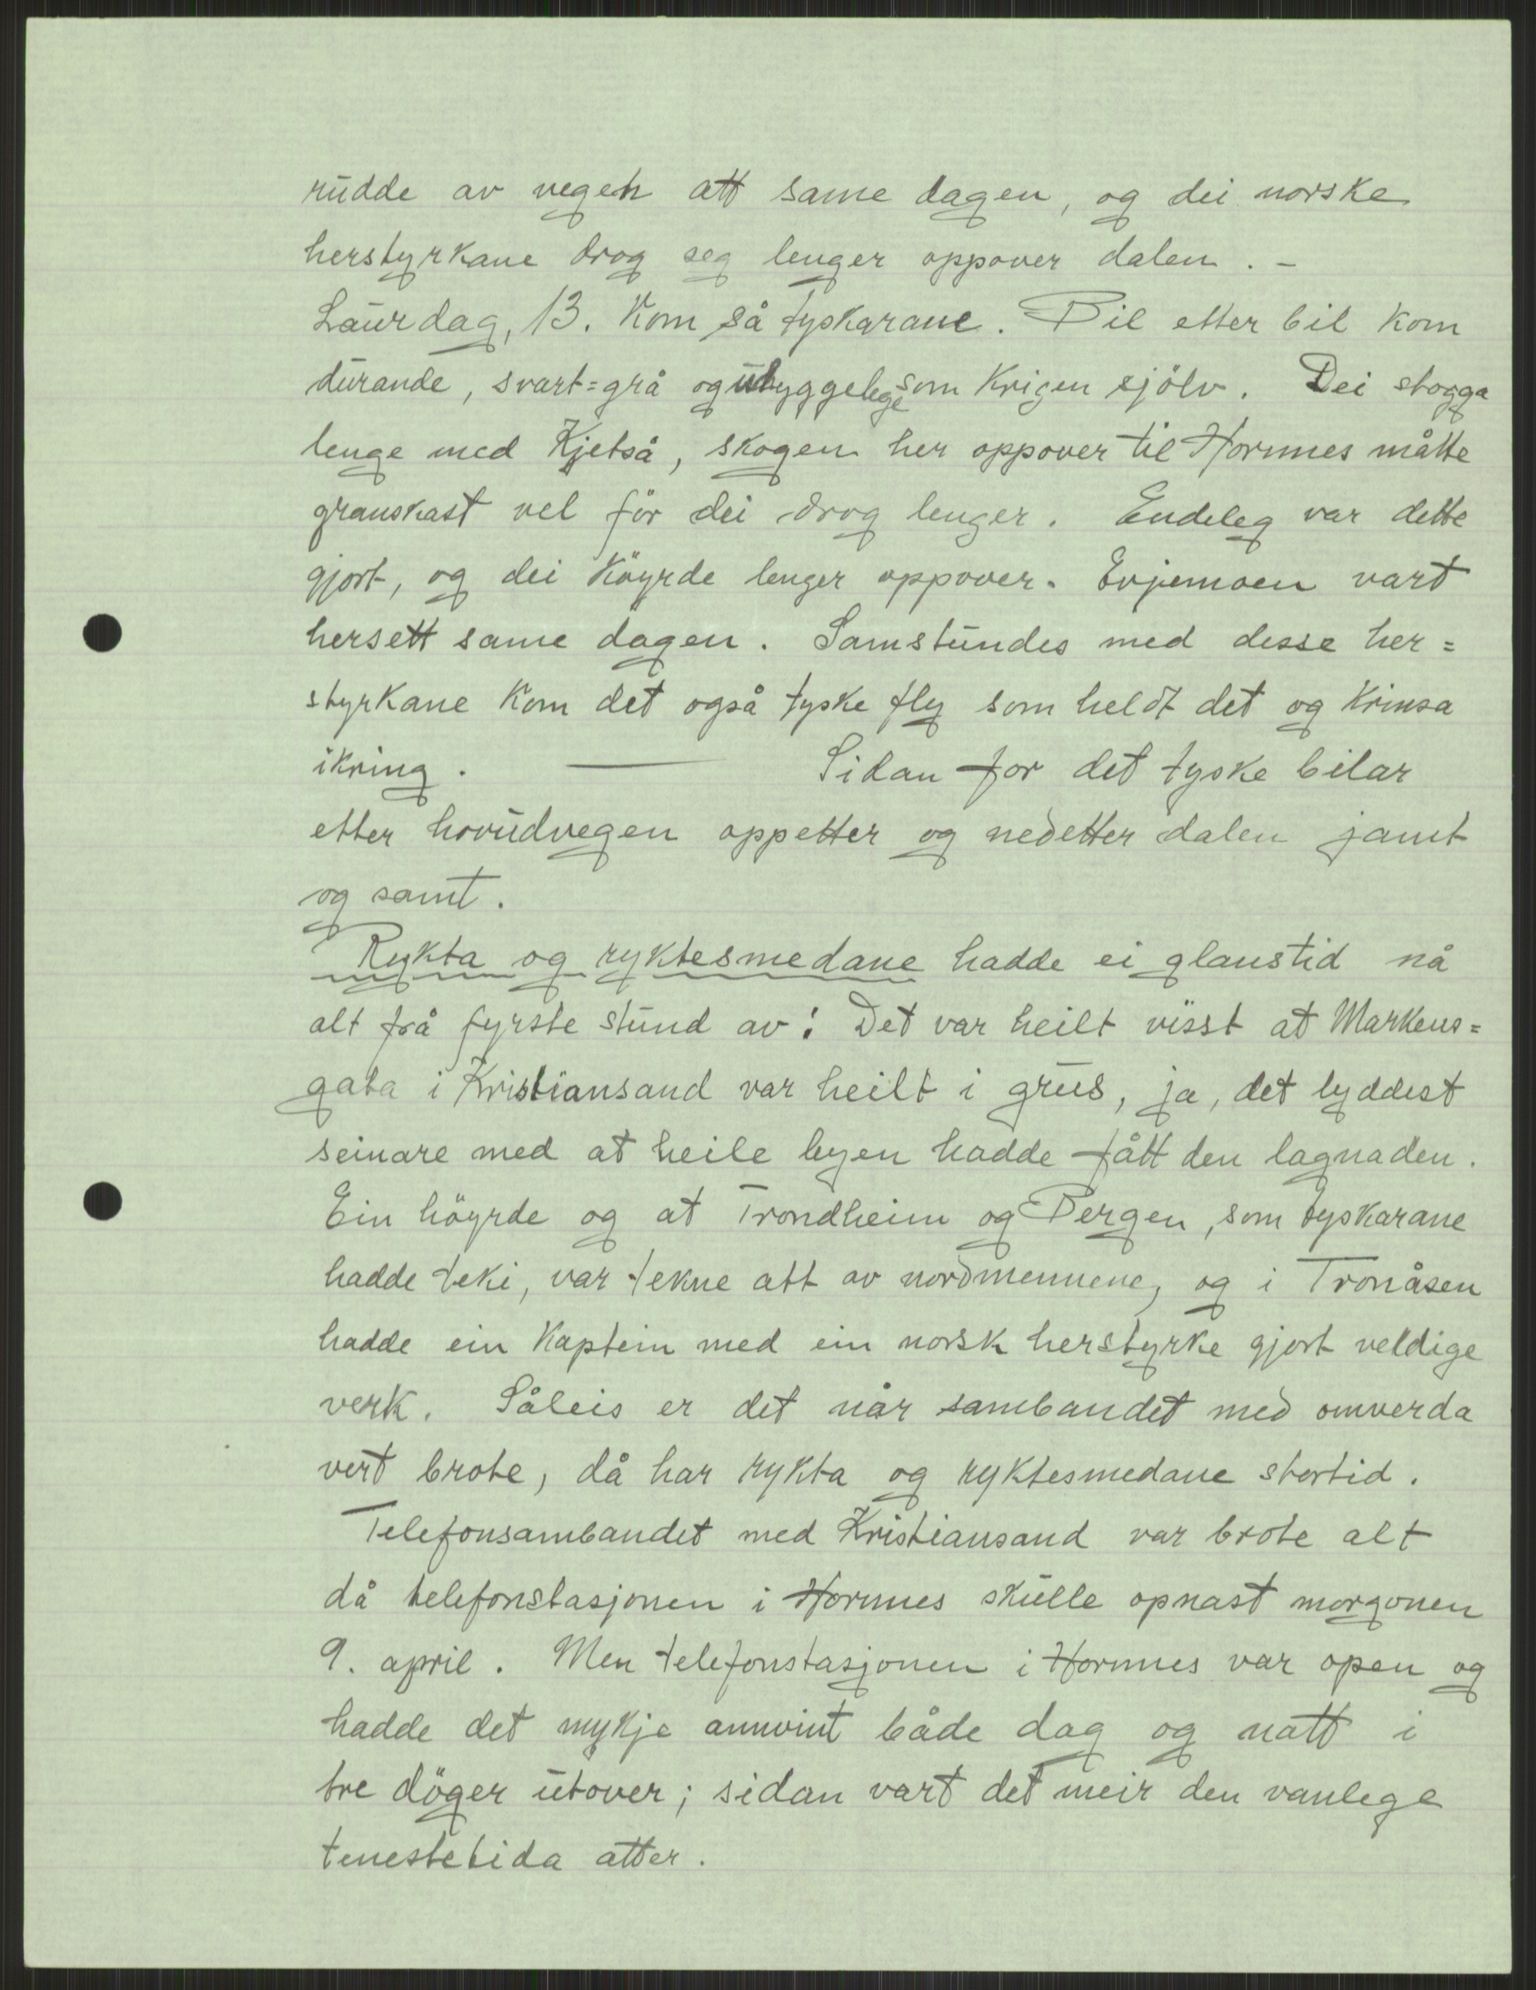 rudde av vegen att same dagen, og dei norske
herstyrkane drog seg lenger oppover dalen. –
Laurdag, 13. kom så tyskarane. Bil etter bil kom
durande, svart=grå og uhyggelege som krigen sjölv. Dei stogga
lenge med Kjetså, skogen her oppover til Hornnes måtte
granskast vel för dei drog lenger. Endeleg var dette
gjort, og dei köyrde lenger oppover. Evjemoen vart
hersett same dagen. Samstundes med desse her=
styrkane kom det også tyske fly som heldt det og krinsa
ikring. — Sidan for det tyske bilar
etter hovudvegen oppetter og nedetter dalen jamt
og samt.
Rykta og ryktesmedane hadde ei glanstid nå
alt frå fyrste stund av: Det var heilt visst at Markens=
gata i Kristiansand var heilt i grus, ja, det lyddest
seinare med at heile byen hadde fått den lagnaden.
Ein höyrde og at Trondheim og Bergen, som tyskarane
hadde teki, var tekne att av nordmennene, og i Tronåsen
hadde ein kaptein med ein norsk herstyrke gjort veldige
verk. Såleis er det når sambandet med omverda
vert brote, då har rykta og ryktesmedane stortid.
Telefonsambandet med Kristiansand var brote alt
då telefonstasjonen i Hornnes skulle opnast morgonen
9. april. Men telefonstasjonen i Hornnes var open og
hadde det mykje annvint både dag og natt i
tre döger utover; sidan vart det meir den vanlege
tenestetida atter.